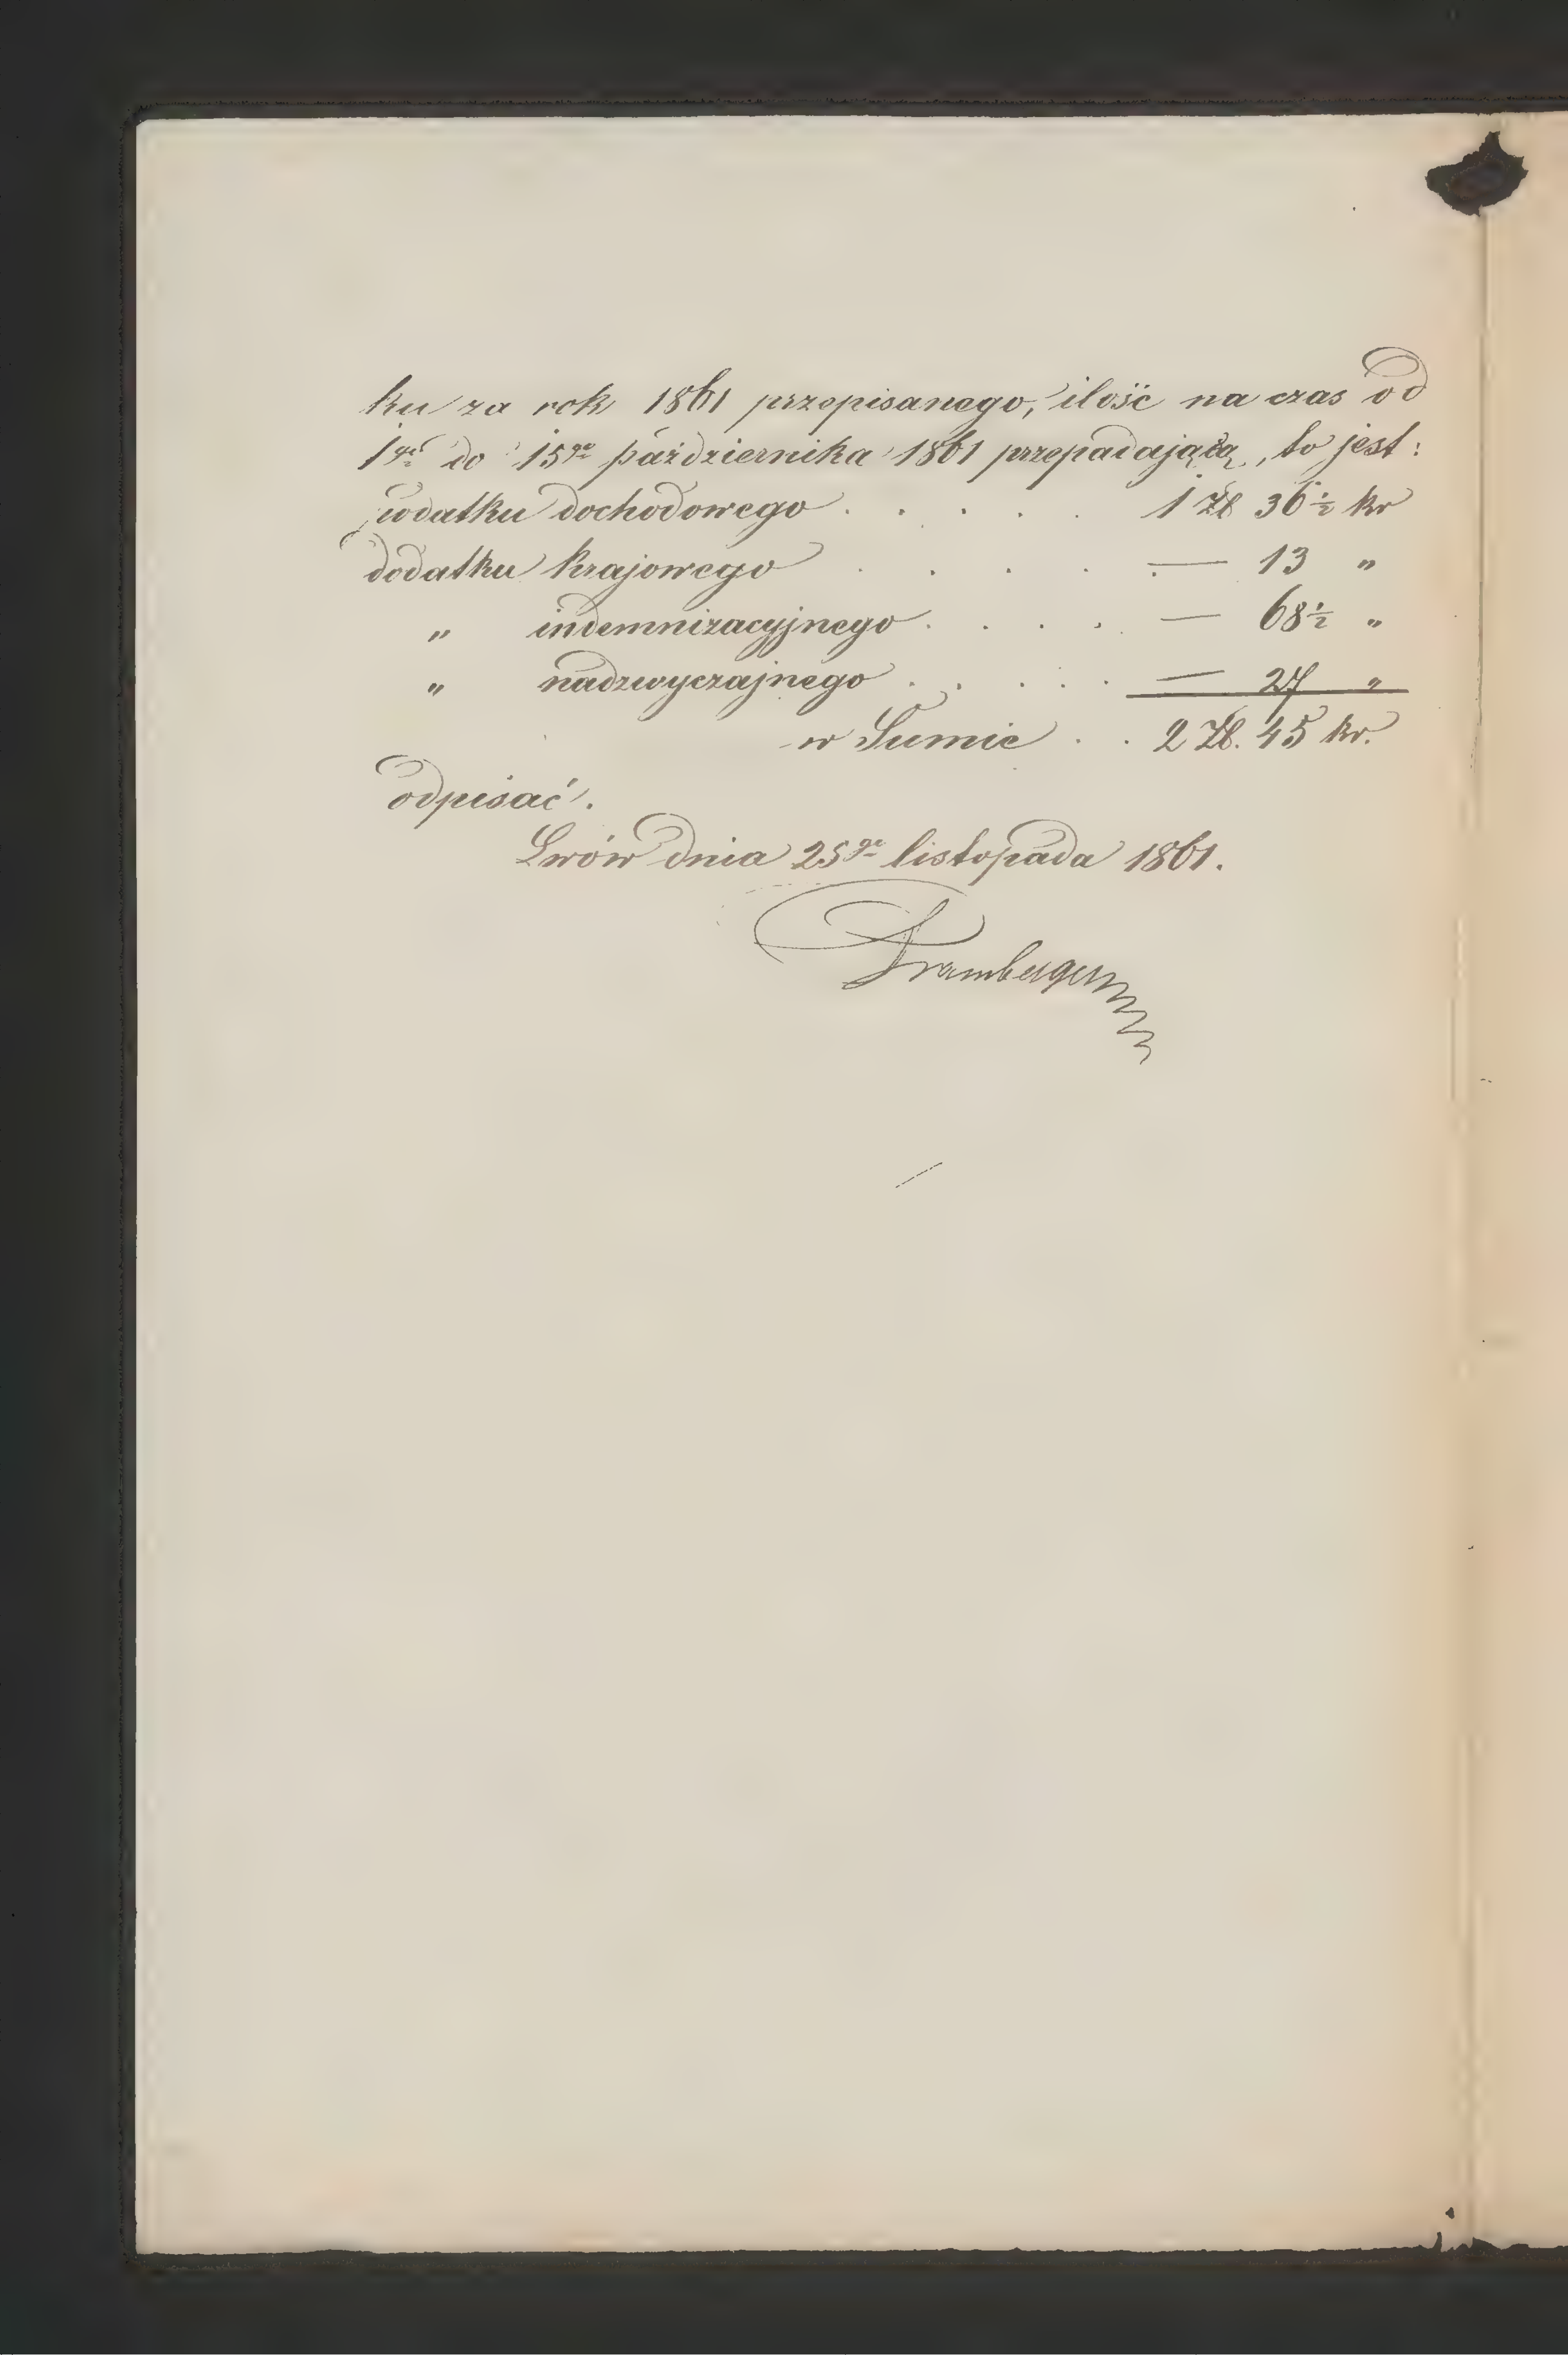 ku za rok 1861 przepisanego, ilość na czas od
1go do 15go października 1861 przepadającą, to jest:
podatku dochodowego . . . . . 1 Zł 36½ kr
dodatku krajowego . . . . . — 13 "
" indemnizacyjnego . . . . — 68½ "
" nadzwyczajnego . . . . . — 27 "
w Sumie . . 2 Zł. 45 kr.
odpisać.
Lwów dnia 25go listopada 1861.